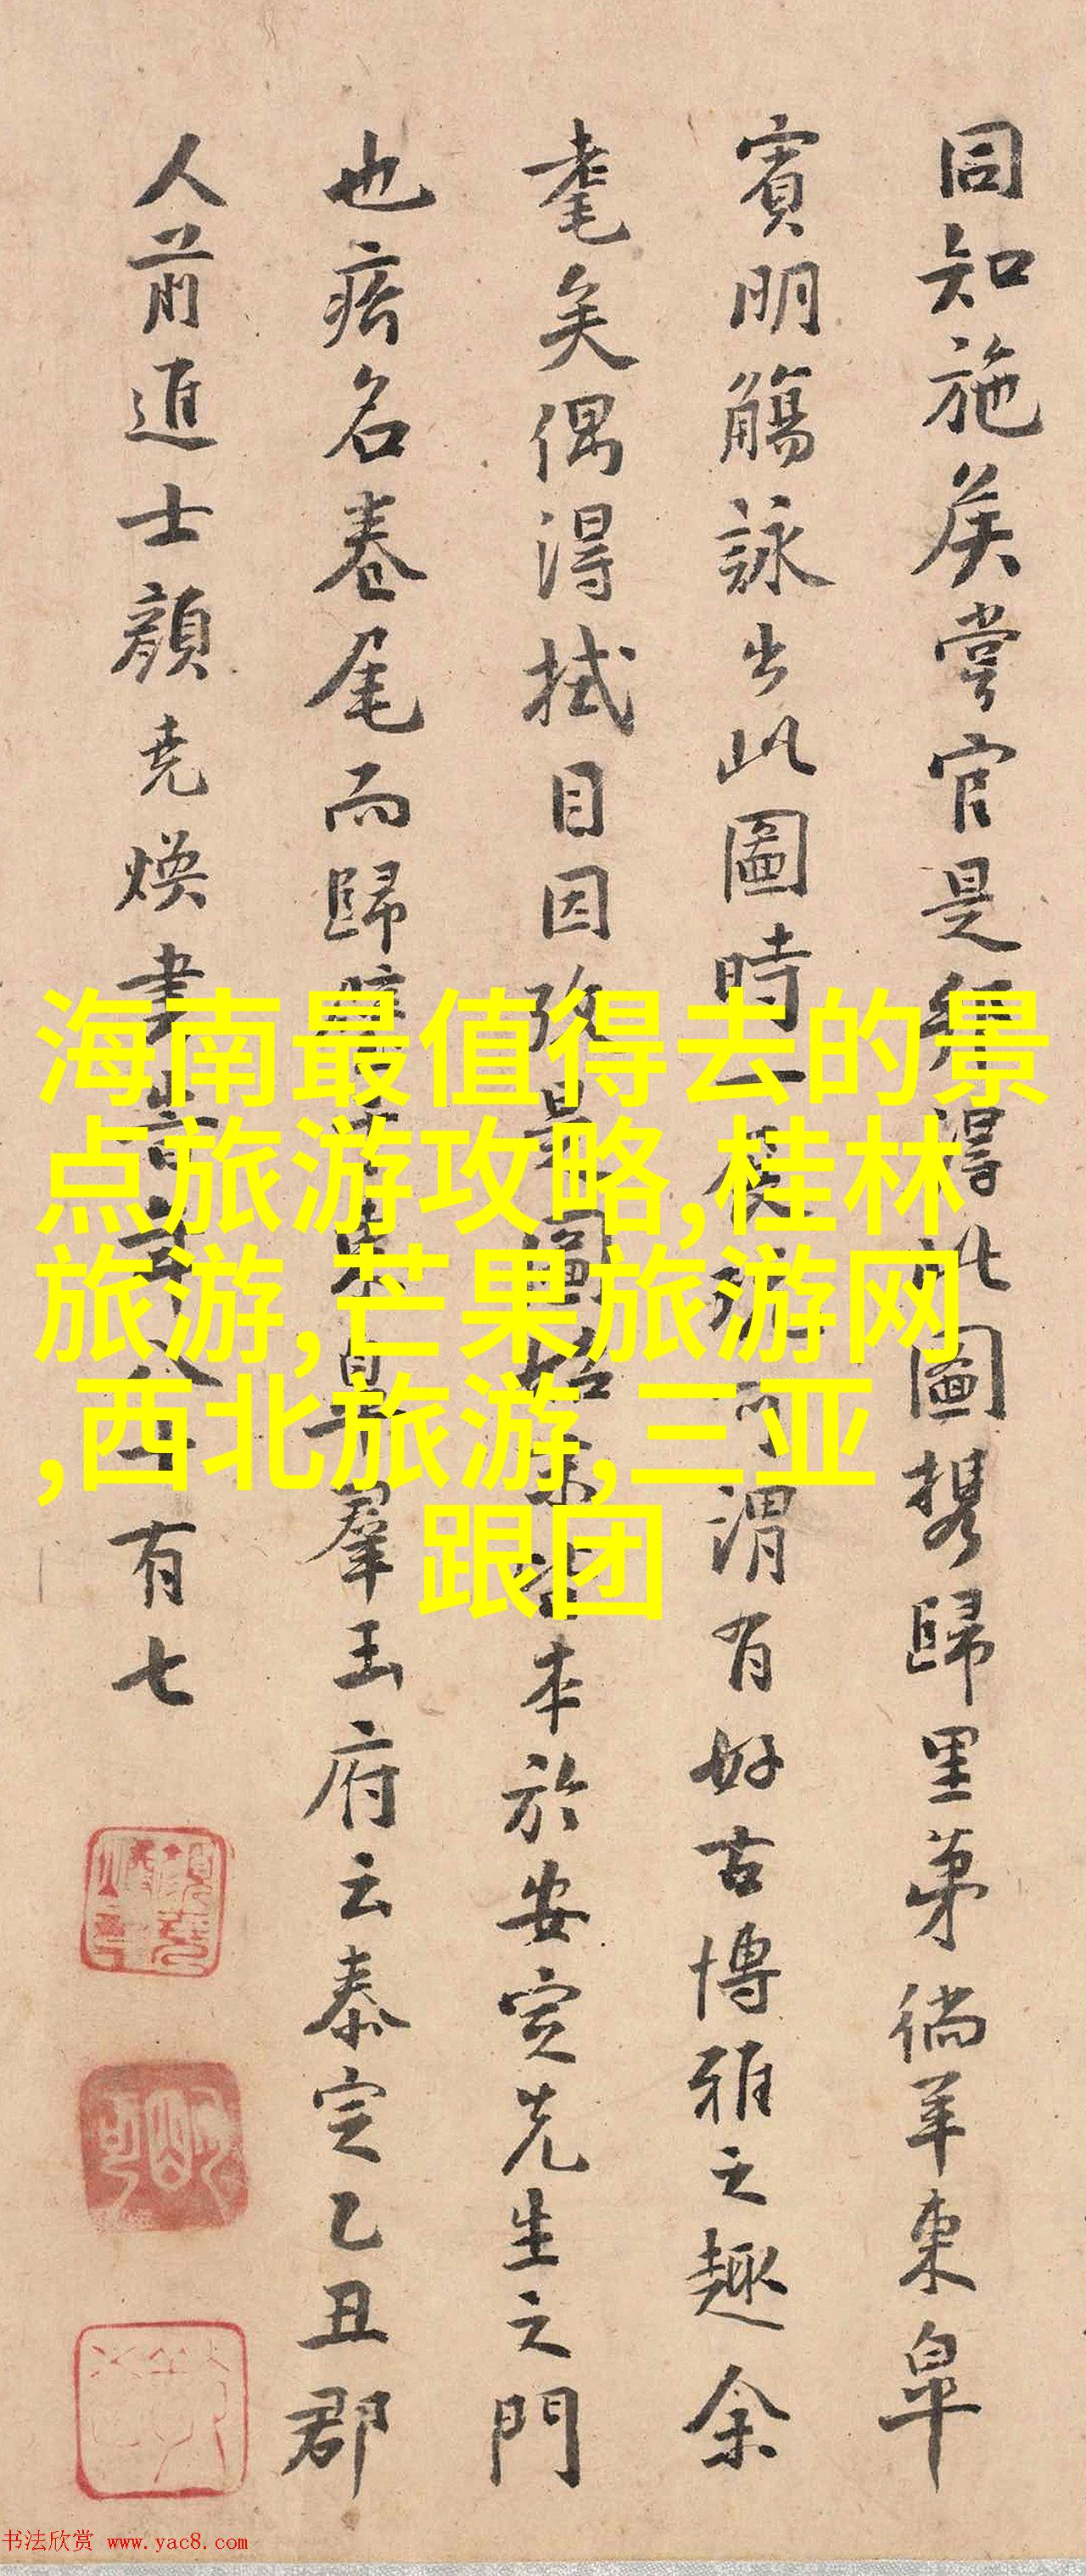 同知施矦嘗官是鄉得此圖携歸里苐徜羊東皐
賓明觴詠出此圖時一展玩可謂有好古博雅之趣余
耄矣偶得拭目因攷是圖始末皆本於安定先生之門
也瘩名卷尾而歸
羣玉府云泰定乙丑郡
人前進士顏堯煥書
八十有七
海南最值得去的景
点旅游攻略,桂林
旅游,芒果旅游网
,西北旅游,三亚
跟团
书法欣赏 www.yac8.com